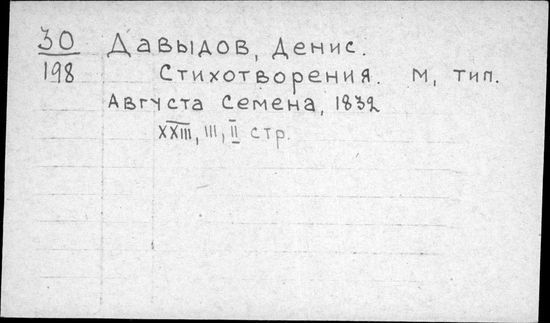 30 Давыдов, Денис.
198 Стихотворения. М, тип.
Августа Семена, 1832
XXIII, III, II стр.